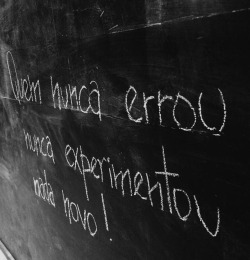 Quem nunca errou
nunca experimentou
nada novo!